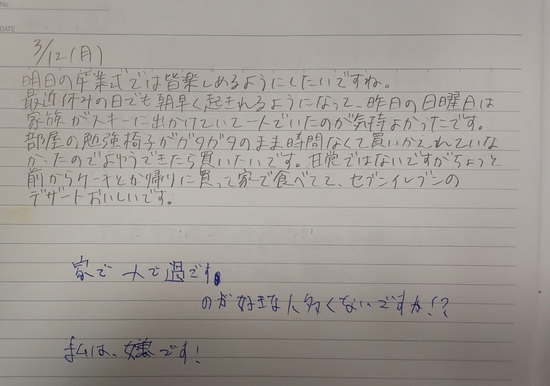 No.
DATE
3/12(月)
明日の卒業式では皆楽しめるようにしたいですね。
最近休みの日でも朝早く起きれるようになって、昨日の日曜日は
家族がスキーに出かけていて一人でいたのが気持よかったです。
部屋の勉強椅子がガタガタのまま時間なくて買いかえれていな
かったのでようできたら買いたいです。日常ではないですがちょっと
前からケーキとか帰りに買って家で食べてて、セブンイレブンの
デザートおいしいです。
家で一人で過です
のが好きな人多くないですか!?
私は、嫌です!